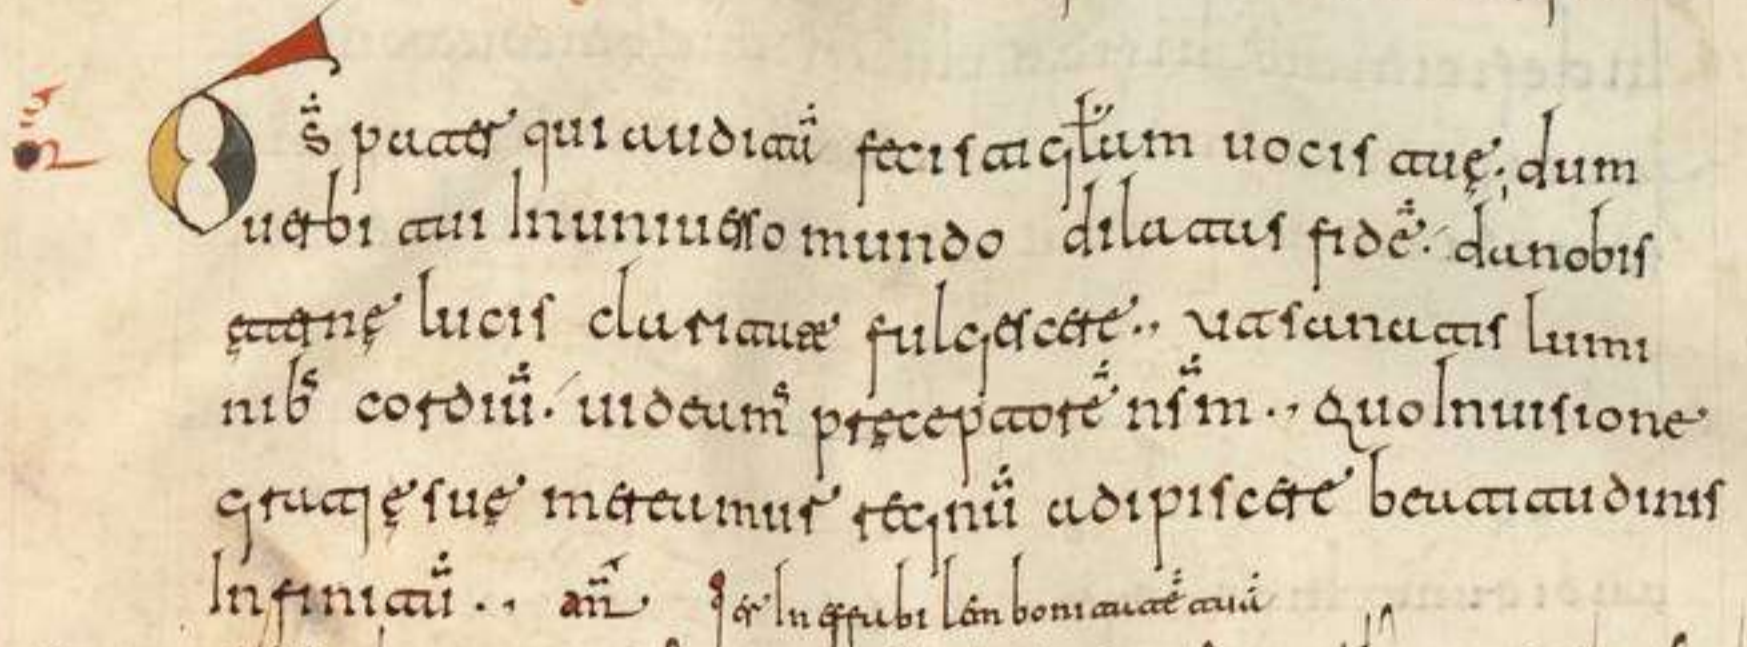 Ds̄ pater qui auditū fecisti głum uocis tuę; dum
uerbi tui In uniuerso mundo dilatas fidē. da nobis
ęternę lucis claritatæ fulgescere.. ut sanatis lumi
nibs cordiū. uideams pręceptorē nsm̄.. quo In uisione
gratię suę mereamur regnū adipiscere beatitudinis
Infinitū.. am̄ Per Ineffabilem bonitatē tuā